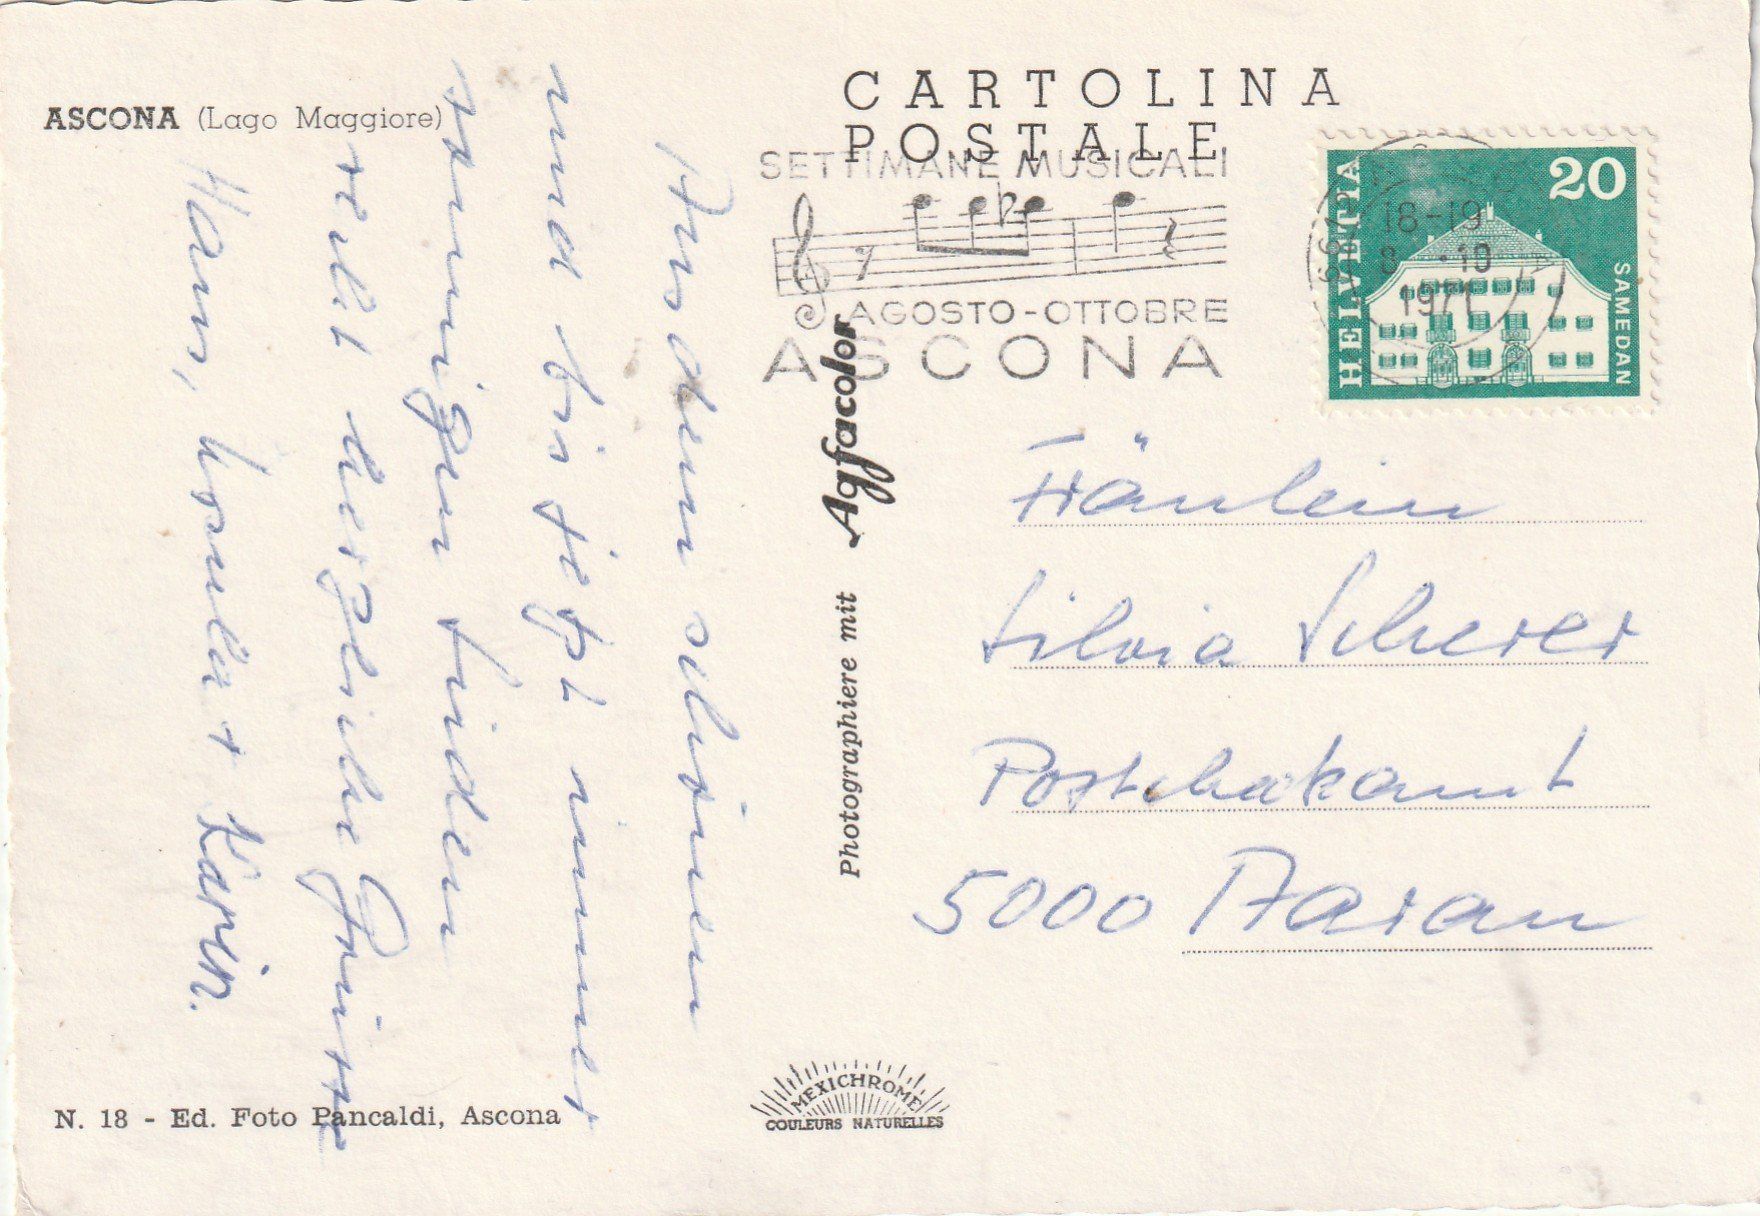 CARTOLINA
POSTALE
ASCONA (Lago Maggiore)
SETTIMANE MUSICALI
AGOSTO-OTTOBRE
ASCONA
HELVETIA
20
SAMEDAN
6612
18-19
8.-10
1971
Aus dem schönen
und bis jetzt immer
sonnigen Süden
recht herzliche Grüsse
Hans, Ursula + Karin.
Photographiere mit Agfacolor
Fräulein
Silvia Scherer
Postcheckamt
5000 Aarau
N. 18 - Ed. Foto Pancaldi, Ascona
MEXICHROME
COULEURS NATURELLES